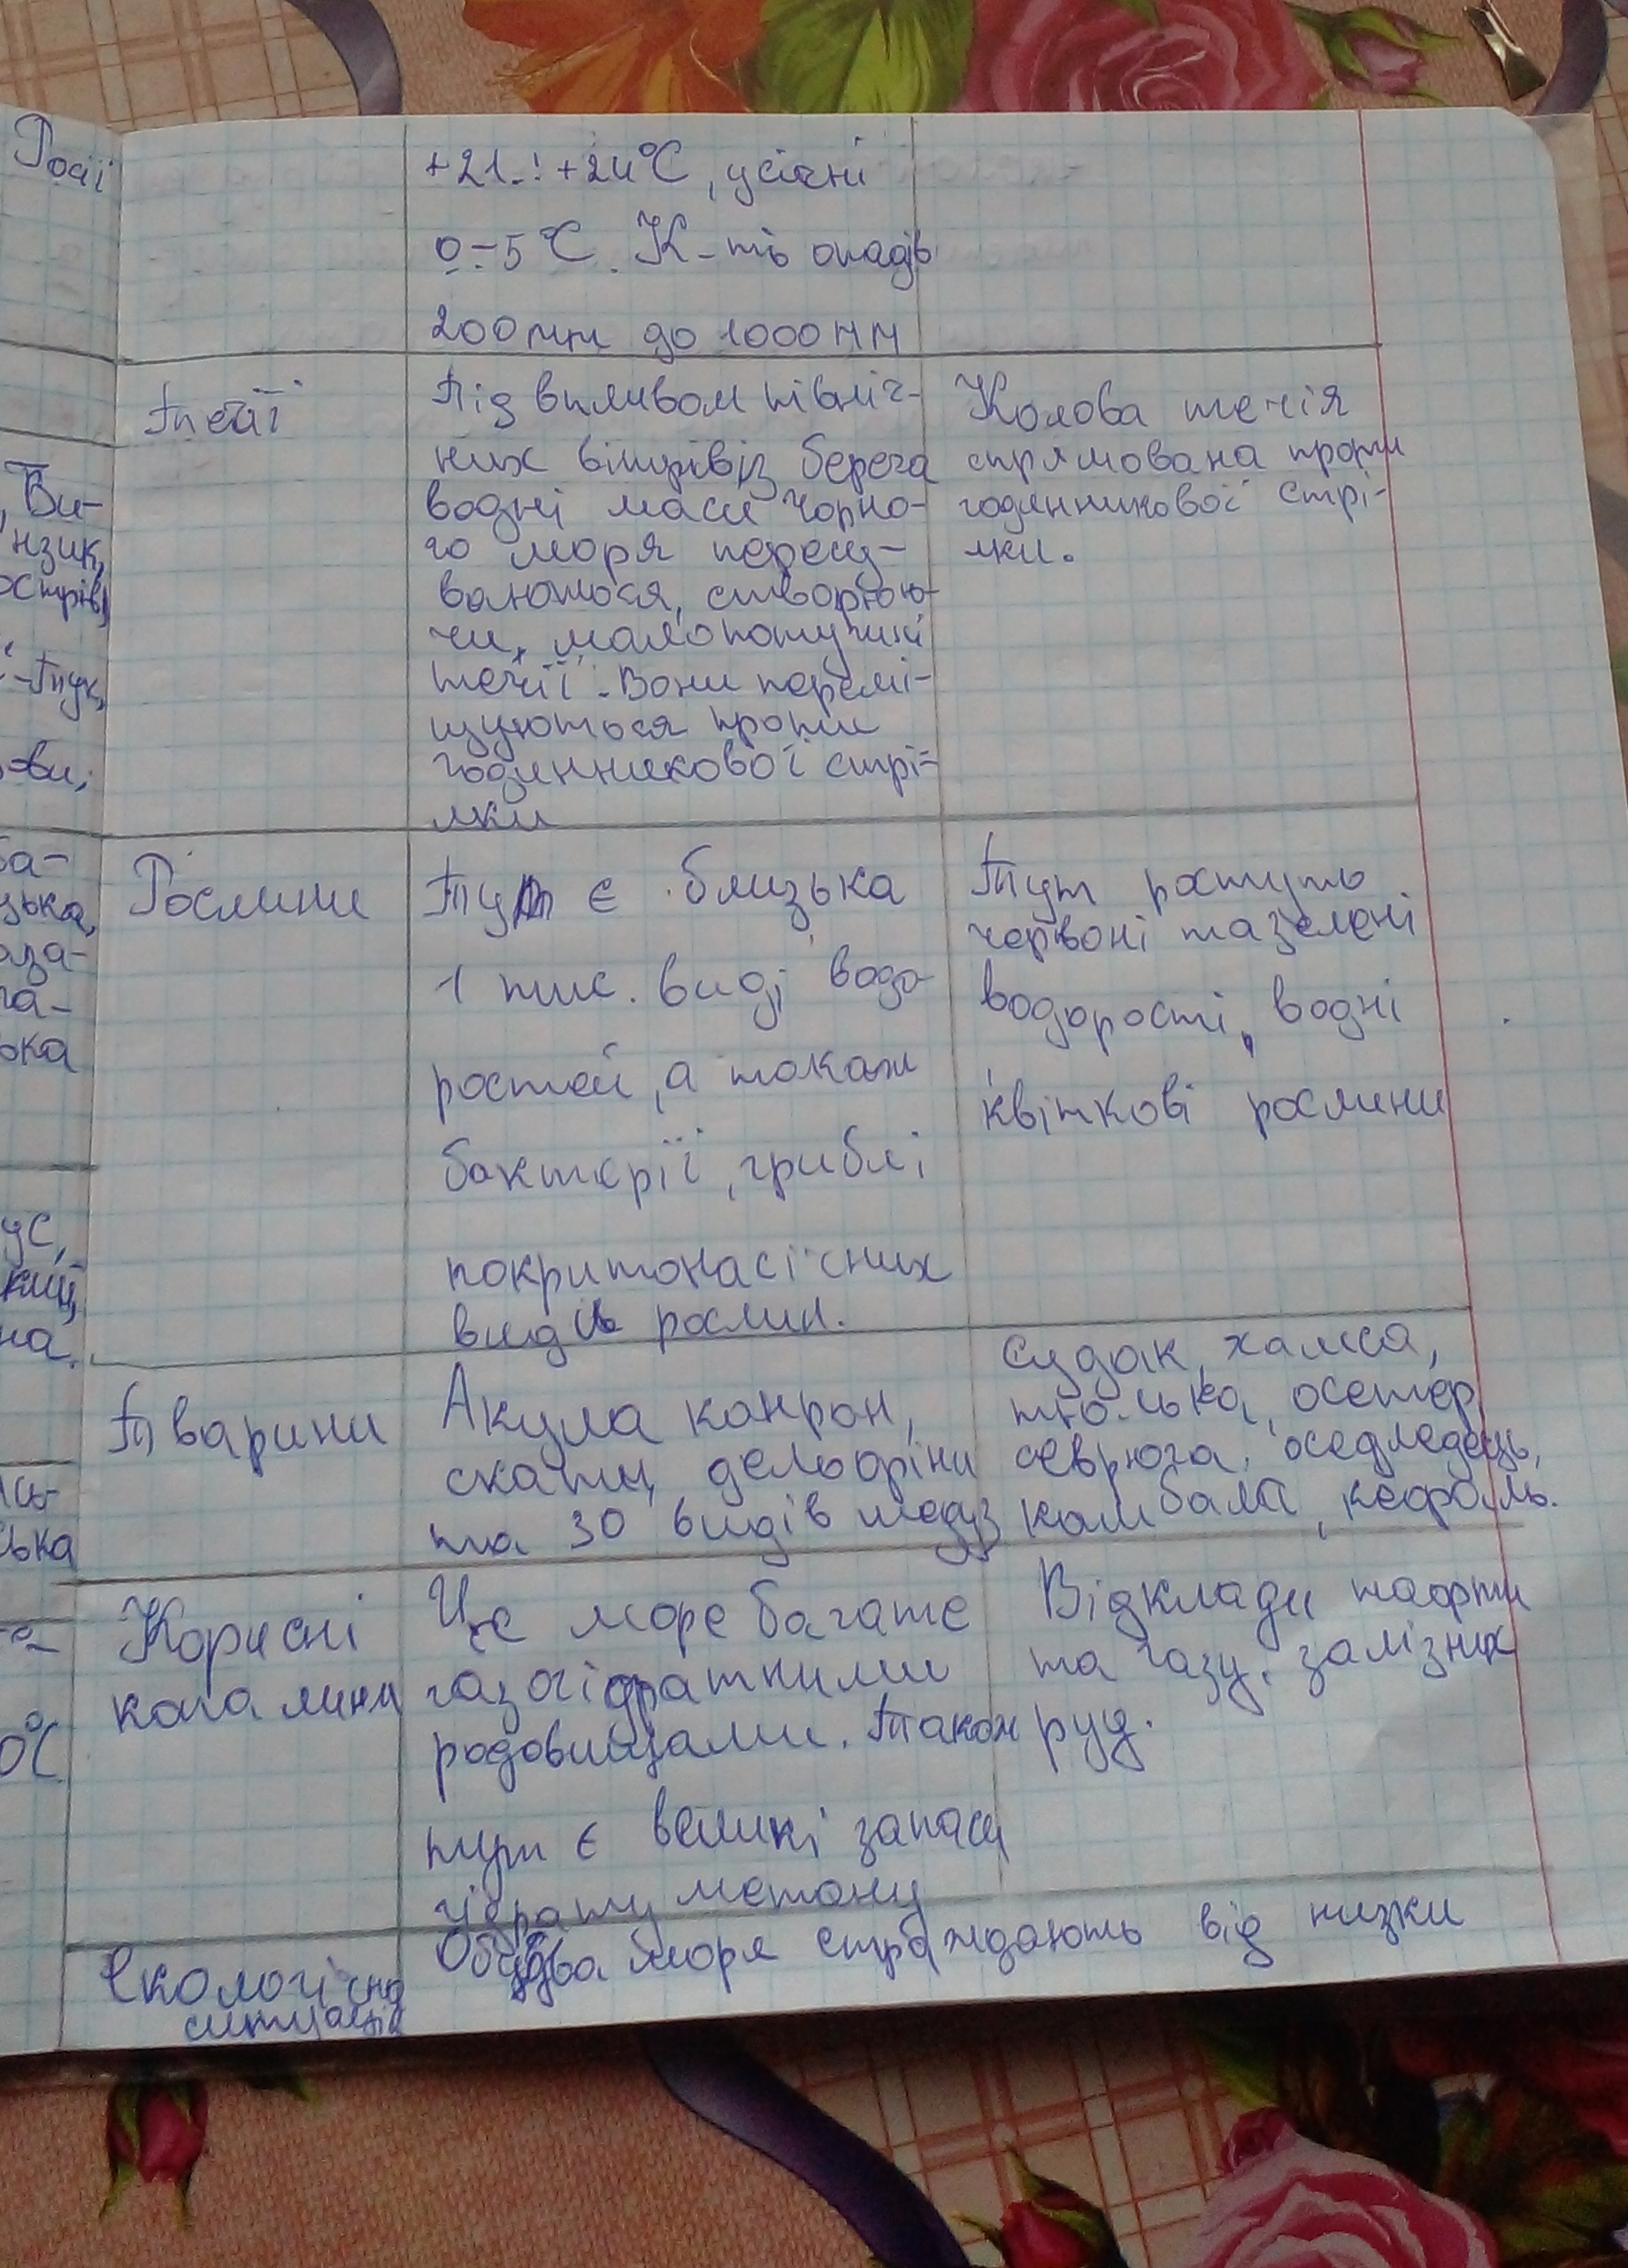 Росії
+21..: +24°С, у січні
0-5°С. К-ть опадів
200мм до 1000мм
Течії
Під впливом північ-
них вітрівіз берега
водні маси Чорно-
го моря пересу-
ваються, створюю-
чи, малопотужні
течії. Вони перемі-
щуються проти
годинникової стрі-
лки
Колова течія
спрямована проти
годинникової стрі-
лки.
Рослини
Тут є близька
1 тис. виді водо-
ростей, а також
бактерії, гриблі
покритонасінних
видів рослин.
Тут ростуть
червоні та зелені
водорості, водні
квіткові рослини
Тварини
Акула канран,
скати, дельфіни
та 30 видів медуз
судак, хамса,
тюлька, осетер,
севрюга, оседледець,
камбала, кефаль.
Корисні
копалини
Це море багате
газогідратними
родовищами. Також
тут є великі запаси
гідрату метану
Відклади нафти
та газу, залізних
руд.
Екологічна
ситуація
Обидва моря страждають від низки
Ви-
нзик,
острів,
-Тук,
ви,
ба-
зька,
аза-
га-
ька
ус,
кий,
на.
ська
0°С